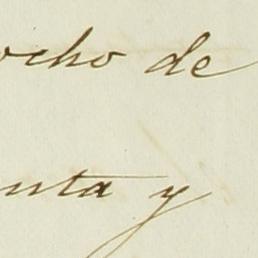 ocho de
nta y